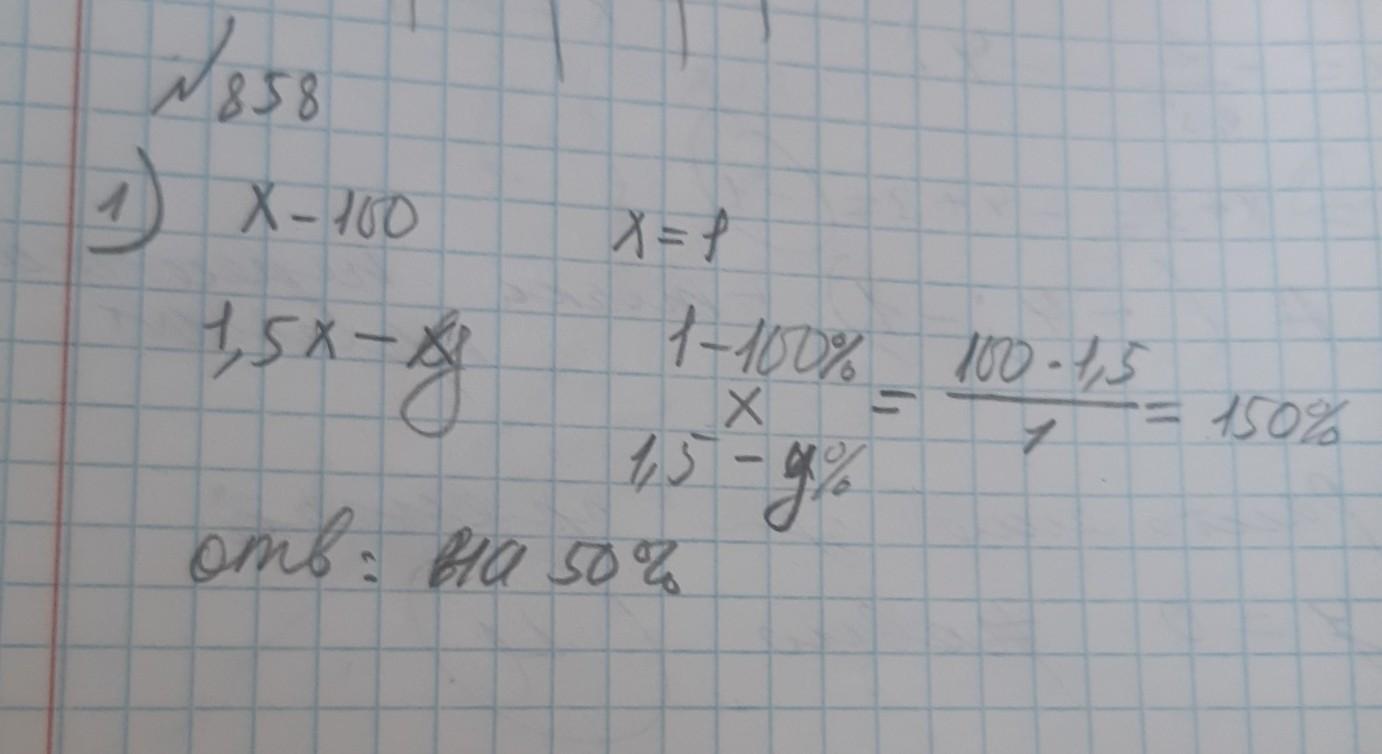 №858
1) x - 100 x = 1
1,5x - y 1 - 100%
x = 100 · 1,5 / 1 = 150%
1,5 - y%
отв: на 50%